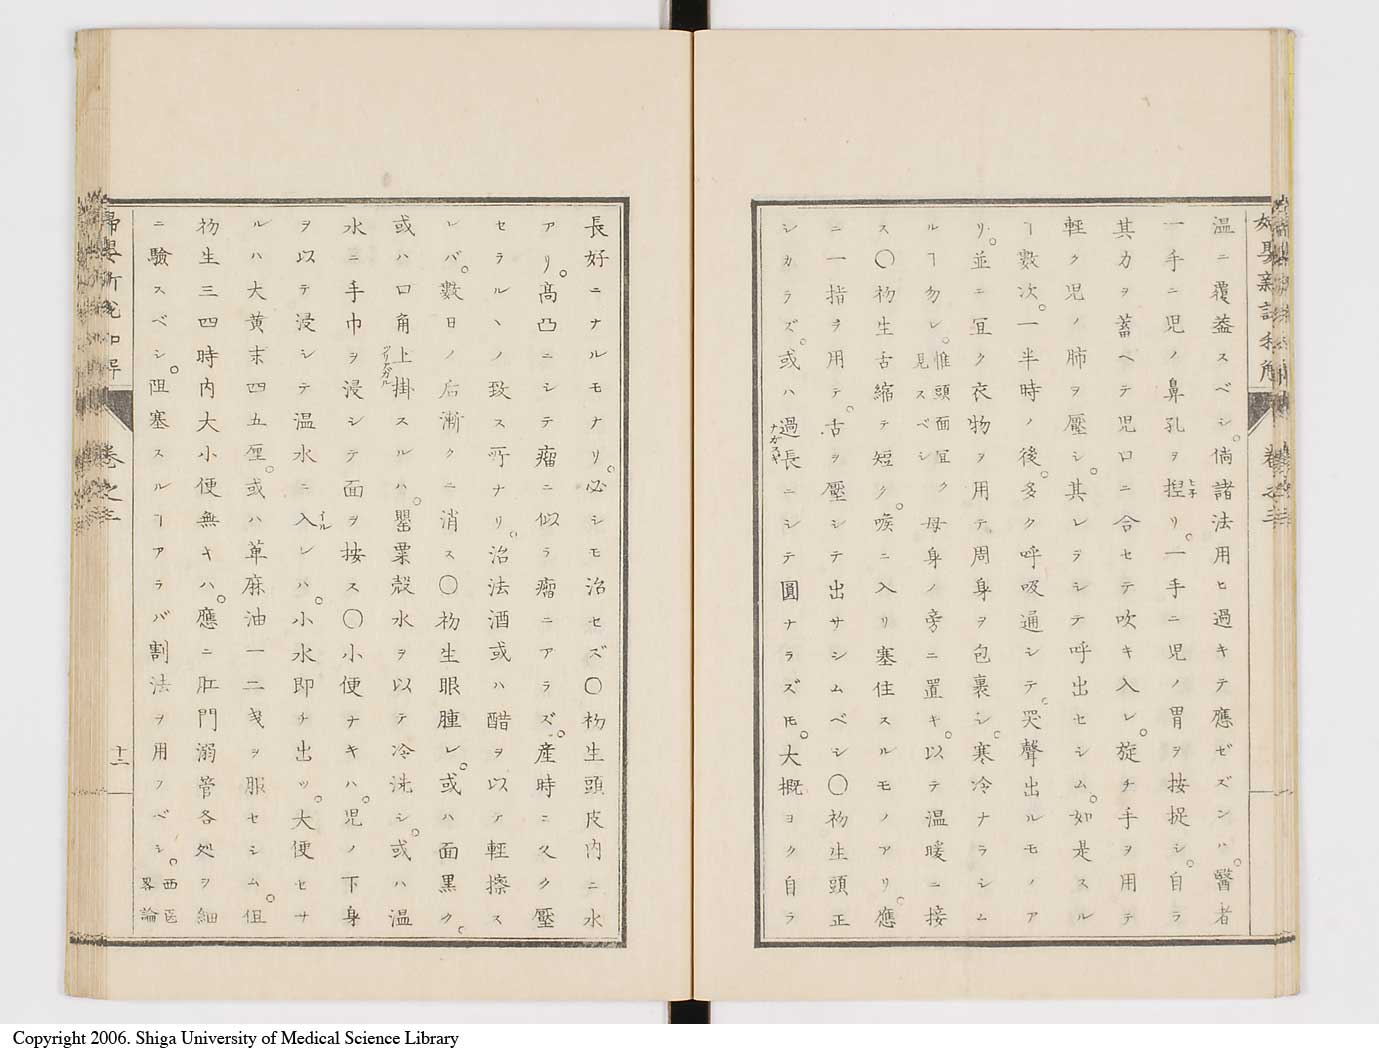 温ニ覆葢スベシ。倘諸法用ヒ過キテ應ゼズンハ。醫者
一手ニ児ノ鼻孔ヲ揑リ。一手ニ児ノ胃ヲ按捉シ。自ラ
其力ヲ蓄ヘテ児口ニ合セテ吹キ入レ。旋チ手ヲ用テ
軽ク児ノ肺ヲ壓シ。其レヲシテ呼出セシム。如是スル
ヿ數次。一半時ノ後。多ク呼吸通シテ。哭聲出ルモノア
リ。並ニ冝ク衣物ヲ用テ周身ヲ包裹シ。寒冷ナラシム
ルヿ勿レ。惟頭面冝ク見スベシ母身ノ旁ニ置キ。以テ温暖ニ接
ス〇初生舌縮テ短ク。喉ニ入リ塞住スルモノアリ。應
ニ一指ヲ用テ。舌ヲ壓シテ出サシムベシ〇初生頭正
シカラズ。或ハ過長ニシテ圓ナラズトモ。大概ヨク自ラ
長好ニナルモナリ。必シモ治セズ〇初生頭皮内ニ水
アリ。髙凸ニシテ瘤ニ似ラ瘤ニアラズ。産時ニ久ク壓
セラルヽノ致ス所ナリ。治法酒或ハ醋ヲ以テ軽擦ス
レバ。數日ノ后漸クニ消ス〇初生眼腫レ。或ハ面黒ク。
或ハ口角上掛スルハ。罌粟殻水ヲ以テ冷洗シ。或ハ温
水ニ手巾ヲ浸シテ面ヲ按ス〇小便ナキハ。児ノ下身
ヲ以テ浸シテ温水ニ入レハ。小水即チ出ッ。大便セサ
ルハ大黄末四五厘。或ハ萆麻油一二戔ヲ服セシム。伹
初生三四時内大小便無キハ。應ニ肛門溺管各処ヲ細
ニ驗スベシ。阻塞スルヿアラバ割法ヲ用フベシ。西医畧論
卷之三
十二
Copyright 2006. Shiga University of Medical Science Library